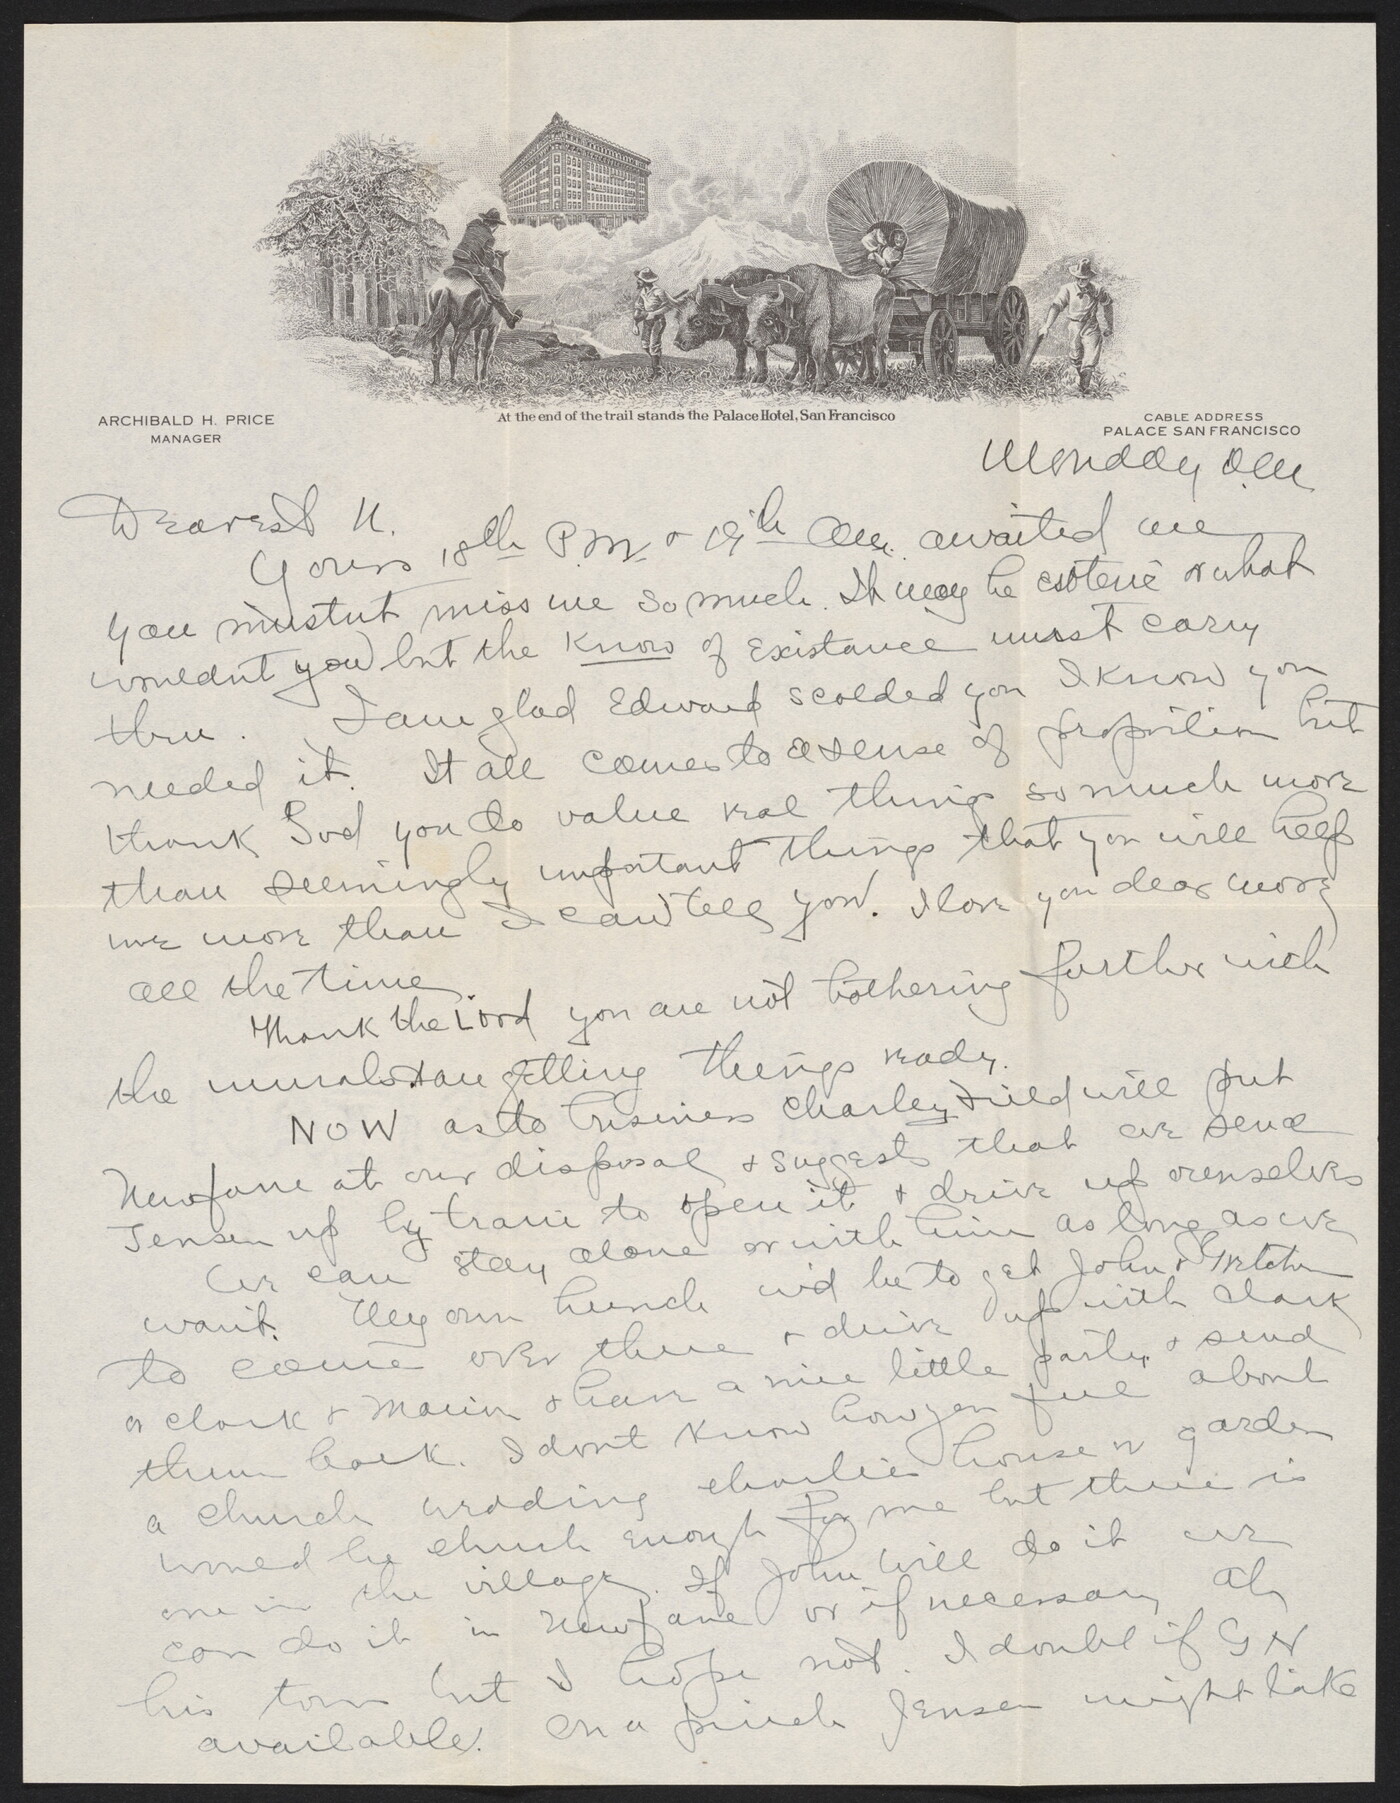 ARCHIBALD H. PRICE
MANAGER
At the end of the trail stands the Palace Hotel, San Francisco
CABLE ADDRESS
PALACE SAN FRANCISCO
Monday a.m.
Dearest U.
Yours 18th P.M. & 19th am. awaited me
you mustnt miss me so much. It may be esoteric or what
wouldnt you but the Know of Existance must carry
thru. I am glad Edward scolded you I know you
needed it. It all comes to a sense of proportion but
thank God you do value real things so much more
than seemingly important things that you will help
me more than I can tell you. I love you dear more
all the time
Thank the Lord you are not bothering further with
the murals & are getting things ready.
NOW as to business Charley Field will put
Newfane at our disposal & suggests that we send
Jensen up by train to open it & drive up ourselves
We can stay alone or with him as long as we
want. My own hunch wd be to get John & Gretchen
to come over there & drive up with Clark
or Clark & & have a nice little party & send
them back. I dont know how you feel about
a church wedding Charlies house or garden
would be church enough for me but there is
one in the village. If John will do it we
can do it in Newfane or if necessary at
his town but I hope not. I doubt if G N
available. On a pinch Jensen might take